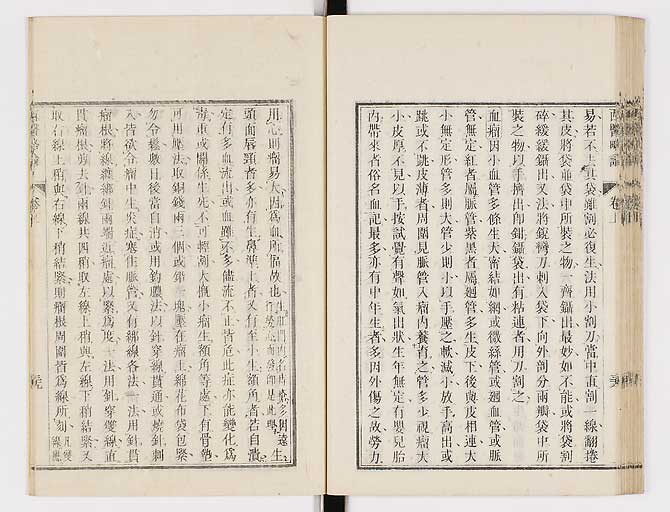 西醫略論
卷上
易若不去其袋雖割必復生法用小割刀當中直割一線翻捲
其皮將袋並袋中所裝之物一齊鑷出最妙如不能或將袋割
碎緩緩鑷出又法將銳彎刀刺入袋下向外割分兩瓣袋中所
裝之物以手擠出卽鉗鑷袋出有粘連者用刀割之
血瘤因小血管多條生大密結如網或微絲管或廻血管或脈
管無定紅者屬脈管紫黑者屬廻管多生皮下後與皮相連大
小無定形管多則大管少則小以手壓之軟減小放手高出或
跳或不跳皮薄者周圍見脈管入瘤內養育之管多少視瘤大
小皮厚不見以手按試覺有聲如氣出狀生年無定有嬰兒胎
內帶來者俗名血記最多亦有中年生者多因外傷之故勞力
用心則瘤易大因爲血所脹故也
頭面唇頸者多亦有生鼻準上者又有至小生額角者若自潰
定有多血流出或血雖不多餘流不止皆危此症亦能變化爲
毒重或關係生死不可輕割大抵小瘤生額角等處下有骨墊
可用壓法取銅錢兩三個或鉛一塊壓在瘤上綿花布袋包緊
勿令鬆數日後當自消或用鈎膿法以針穿線貫通或燒針刺
入皆欲令瘤中生炎症塞住脈管又有綁線各法一法用針貫
瘤根將線纏綁針兩端近瘤處以緊爲度一法用針穿雙線直
貫瘤根剪去針兩線共四稍取左線上稍與左線下稍結緊又
取右線上稍與右線下稍結緊則瘤根周圍皆爲線所刻